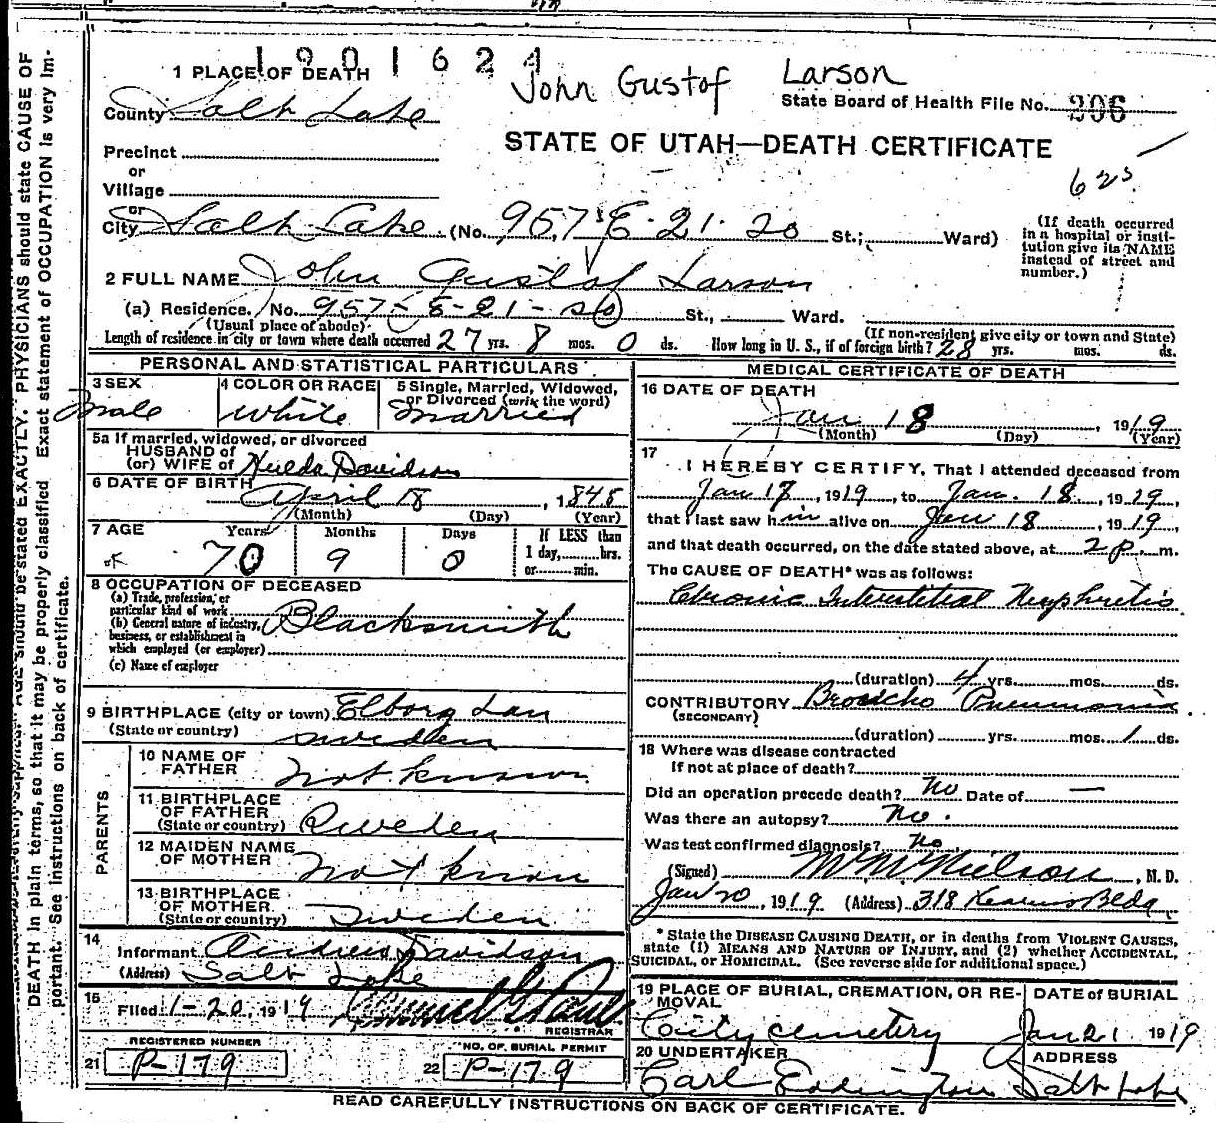 1901624
John Gustof Larson
1 PLACE OF DEATH
County Salt Lake
State Board of Health File No. 206
STATE OF UTAH—DEATH CERTIFICATE
Precinct
or
Village
625
or
City Salt Lake (No. 957 E. 21. So St.; Ward)
(If death occurred in a hospital or institution give its NAME instead of street and number.)
2 FULL NAME John Gustof Larson
(a) Residence. No. 957-E-21-So St., Ward.
(Usual place of abode) (If non-resident give city or town and State)
Length of residence in city or town where death occurred 27 yrs. 8 mos. 0 ds. How long in U. S., if of foreign birth? 28 yrs. mos. ds.
PERSONAL AND STATISTICAL PARTICULARS
3 SEX
Male
4 COLOR OR RACE
White
5 Single, Married, Widowed, or Divorced (write the word)
Married
5a If married, widowed, or divorced
HUSBAND of
(or) WIFE of Davidson
6 DATE OF BIRTH April 18, 1848
(Month) (Day) (Year)
7 AGE Years Months Days If LESS than
70 9 0 1 day, hrs.
or min.
8 OCCUPATION OF DECEASED
(a) Trade, profession, or
particular kind of work Blacksmith
(b) General nature of industry,
business, or establishment in
which employed (or employer)
(c) Name of employer
9 BIRTHPLACE (city or town) Elborg Lan
(State or country) Sweden
PARENTS
10 NAME OF FATHER not known
11 BIRTHPLACE OF FATHER (State or country) Sweden
12 MAIDEN NAME OF MOTHER not known
13 BIRTHPLACE OF MOTHER (State or country) Sweden
14
Informant Andrew Davidson
(Address) Salt Lake
15
Filed 1-20, 1919
REGISTRAR
REGISTERED NUMBER
21 P-179
NO. OF BURIAL PERMIT
22 P-179
MEDICAL CERTIFICATE OF DEATH
16 DATE OF DEATH
Jan 18, 1919
(Month) (Day) (Year)
17
I HEREBY CERTIFY, That I attended deceased from
Jan 17, 1919, to Jan. 18, 1919,
that I last saw him alive on Jan 18, 1919,
and that death occurred, on the date stated above, at 2 P. m.
The CAUSE OF DEATH* was as follows:
Chronic Interstitial Nephritis
(duration) 4 yrs. mos. ds.
CONTRIBUTORY Broncho Pneumonia
(SECONDARY)
(duration) yrs. mos. 1 ds.
18 Where was disease contracted
if not at place of death?
Did an operation precede death? No Date of —
Was there an autopsy? No.
Was test confirmed diagnosis? No
(Signed) M McNielson, M. D.
Jan 20, 1919 (Address) 318 Kearns Bldg
* State the DISEASE CAUSING DEATH, or in deaths from VIOLENT CAUSES,
state (1) MEANS AND NATURE OF INJURY, and (2) whether ACCIDENTAL,
SUICIDAL, or HOMICIDAL. (See reverse side for additional space.)
19 PLACE OF BURIAL, CREMATION, OR REMOVAL
City cemetery
DATE of BURIAL
Jan 21 1919
20 UNDERTAKER
Carl Eddington
ADDRESS
Salt Lake
READ CAREFULLY INSTRUCTIONS ON BACK OF CERTIFICATE.
AGE should be stated EXACTLY. PHYSICIANS should state CAUSE OF
DEATH in plain terms, so that it may be properly classified. Exact statement of OCCUPATION is very important. See instructions on back of certificate.